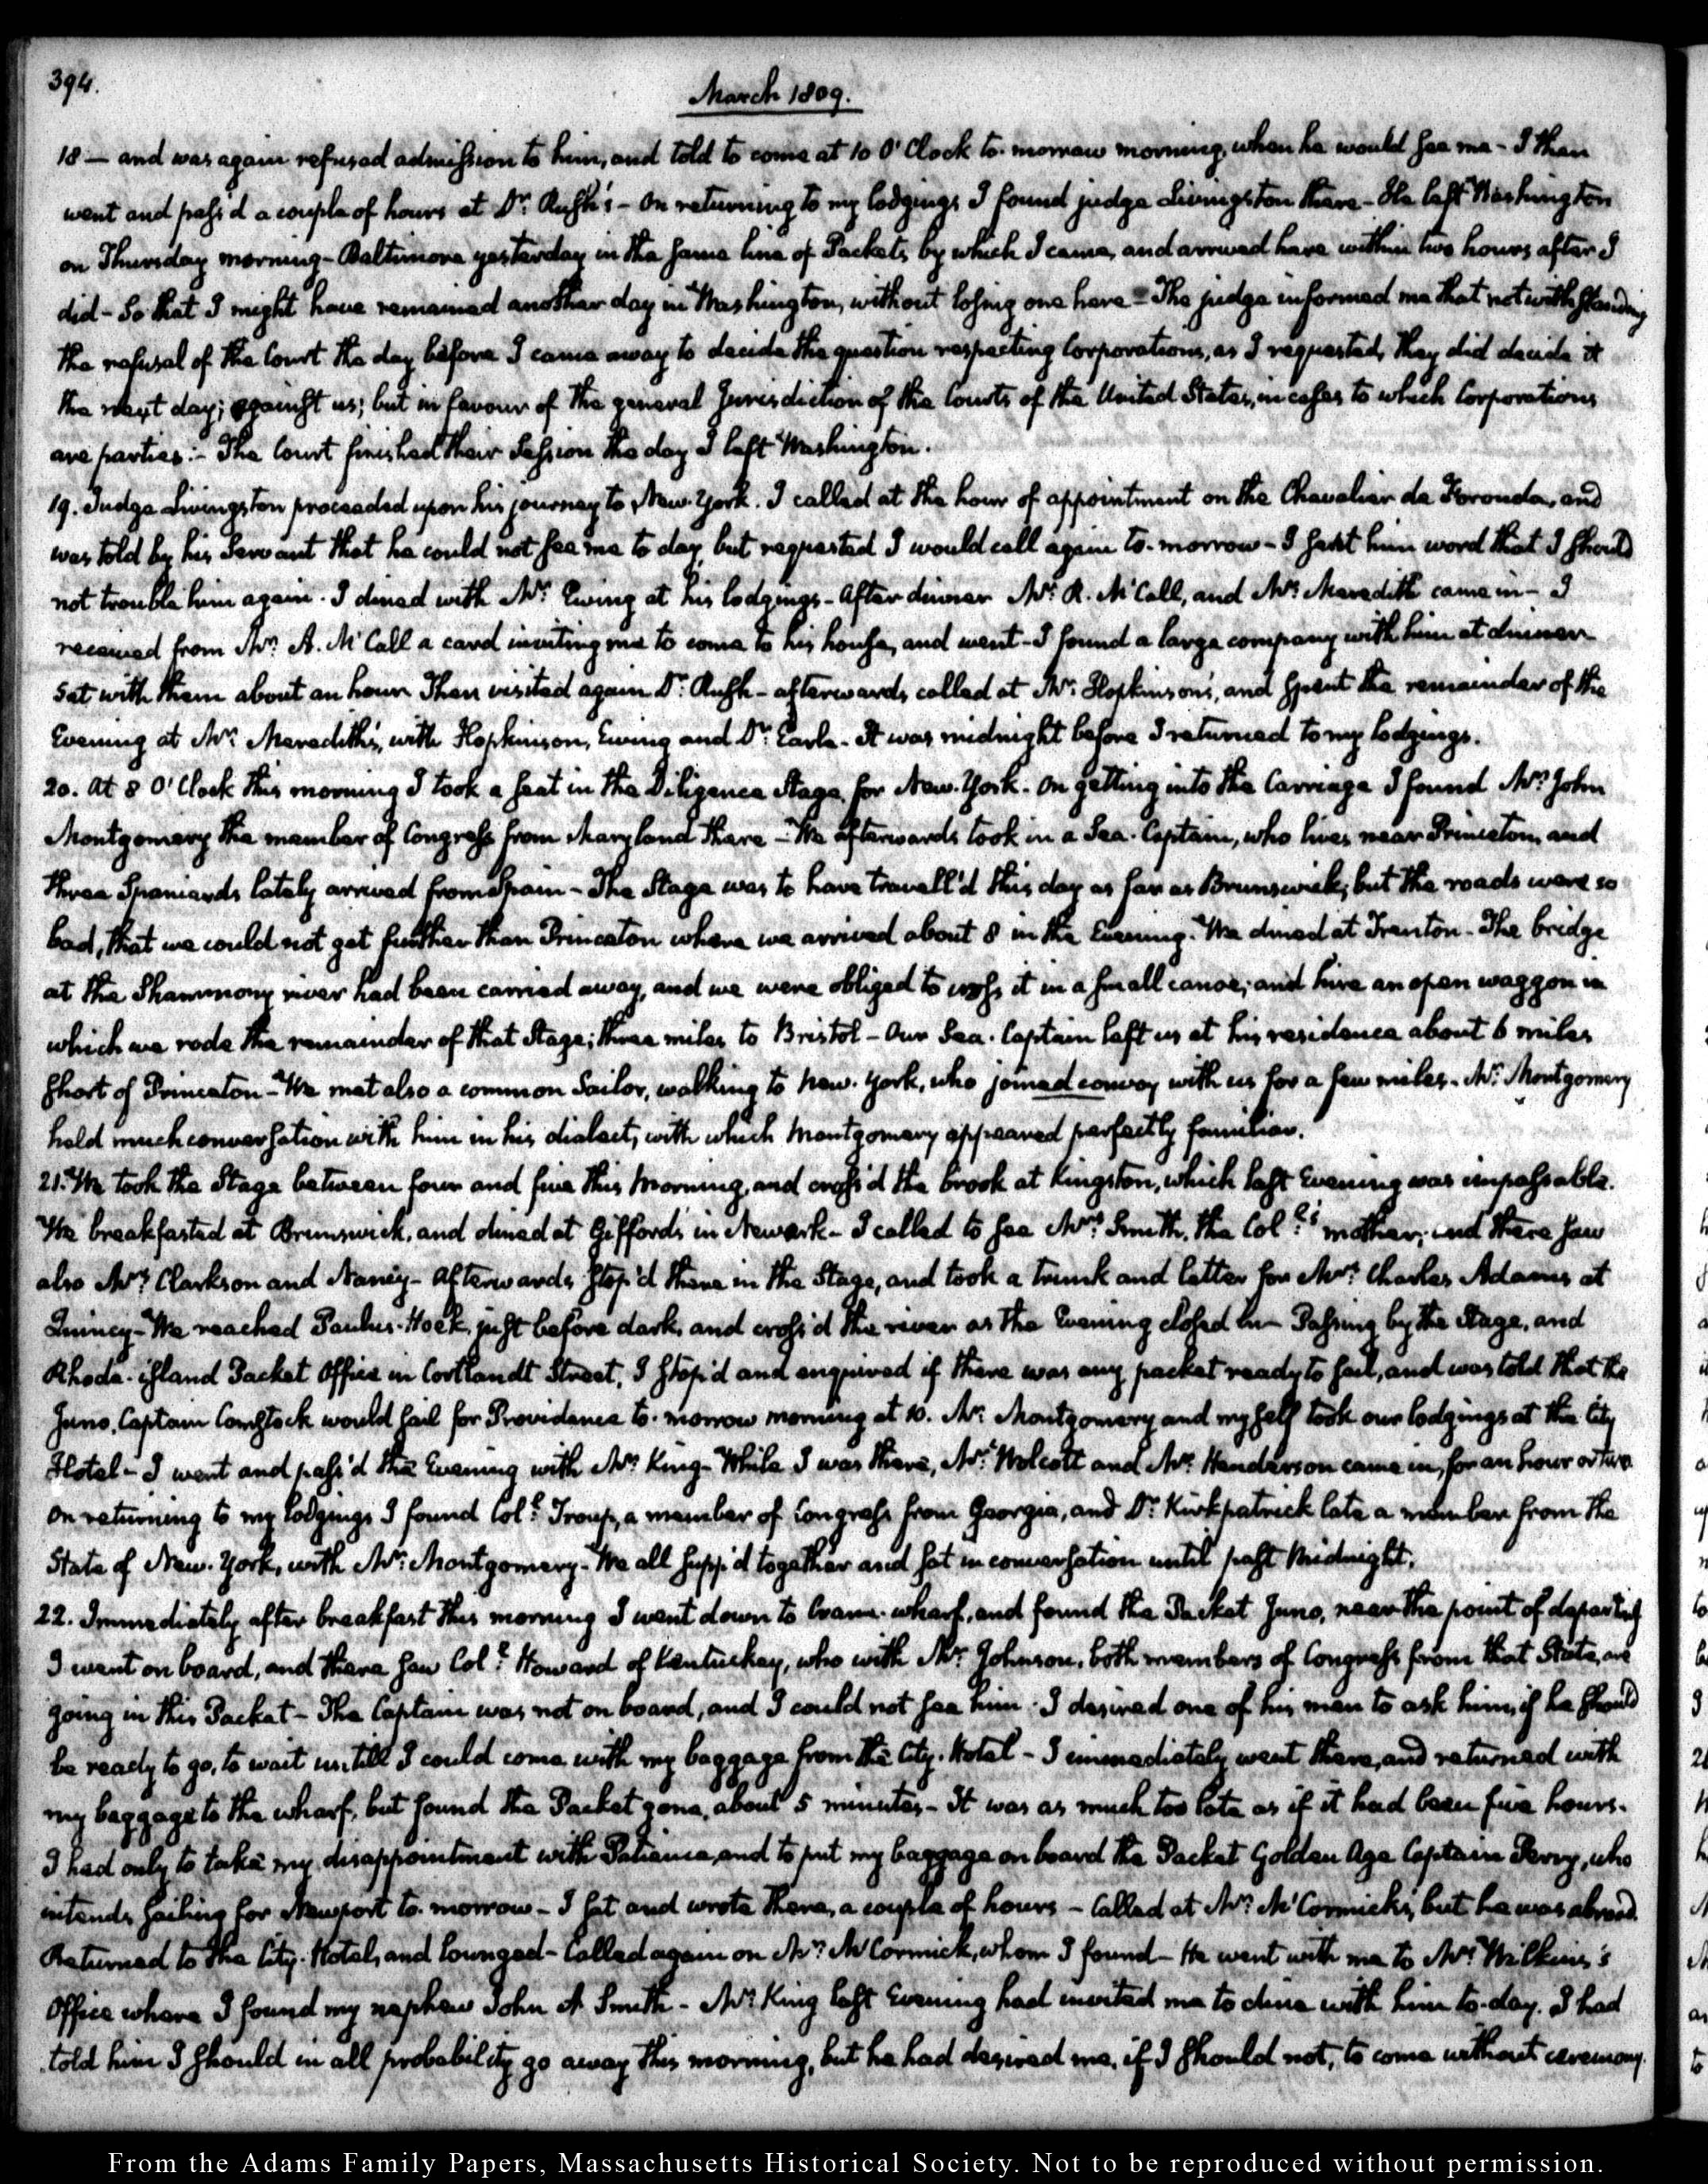 394.
March 1809.
18 — and was again refused admission to him, and told to come at 10 O'Clock to-morrow morning, when he would see me - I then
went and pass'd a couple of hours at Dr. Rush's - On returning to my lodgings I found judge Livingston there - He left Washington
on Thursday morning - Baltimore yesterday in the same line of Packets by which I came, and arrived here within two hours after I
did - So that I might have remained another day in Washington, without losing one here - The judge informed me that notwithstanding
the refusal of the Court the day before I came away to decide the question respecting Corporations, as I requested, they did decide it
the next day; against us; but in favour of the general Jurisdiction of the Courts of the United States, in cases to which Corporations
are parties:- The Court finished their Session the day I left Washington.
19. Judge Livingston proceeded upon his journey to New-York. I called at the hour of appointment on the Chevalier de Foronda, and
was told by his Servant that he could not see me to day, but requested I would call again to-morrow - I sent him word that I should
not trouble him again. I dined with Mr. Ewing at his lodgings - After dinner Mr. R. McCall, and Mr. Meredith came in - I
received from Mr. A. McCall a card inviting me to come to his house, and went - I found a large company with him at dinner
Sat with them about an hour Then visited again Dr. Rush - afterwards called at Mr. Hopkinson's, and spent the remainder of the
Evening at Mr. Meredith's, with Hopkinson, Ewing and Dr. Earle. It was midnight before I returned to my lodgings.
20. At 8 O'Clock this morning I took a seat in the Diligence Stage, for New-York. On getting into the Carriage I found Mr. John
Montgomery the member of Congress from Maryland there - We afterwards took in a Sea-Captain, who lives near Princeton, and
three Spaniards lately arrived from Spain - The Stage was to have travell'd this day as far as Brunswick, but the roads were so
bad, that we could not get further than Princeton where we arrived about 8 in the Evening. We dined at Trenton - The bridge
at the Shammony river had been carried away, and we were obliged to cross it in a small canoe; and hire an open waggon in
which we rode the remainder of that Stage; three miles to Bristol - Our Sea-Captain left us at his residence about 6 miles
short of Princeton - We met also a common Sailor, walking to New-York, who joined convoy with us for a few miles - Mr. Montgomery
held much conversation with him in his dialect, with which Montgomery appeared perfectly familiar.
21. We took the Stage between four and five this morning, and cross'd the brook at Kingston, which last Evening was impassable.
We breakfasted at Brunswick, and dined at Gifford's in Newark - I called to see Mrs. Smith, the Col.'s mother; and there saw
also Mrs. Clarkson and Nancy - Afterwards stop'd there in the Stage, and took a trunk and letter for Mrs. Charles Adams at
Quincy - We reached Paulus-Hoek, just before dark, and cross'd the river as the Evening closed in - Passing by the Stage, and
Rhode-island Packet Office in Cortlandt Street, I stop'd and enquired if there was any packet ready to sail, and was told that the
Juno, Captain Comstock would sail for Providence to-morrow morning at 10. Mr. Montgomery and myself took our lodgings at the City
Hotel - I went and pass'd the Evening with Mr. King - While I was there, Mr. Wolcott and Mr. Henderson came in, for an hour or two
On returning to my lodgings I found Col. Troup, a member of Congress from Georgia, and Dr. Kirkpatrick late a member from the
State of New-York, with Mr. Montgomery - We all supp'd together and sat in conversation until past midnight.
22. Immediately after breakfast this morning I went down to Crane-wharf, and found the Packet Juno, near the point of departing
I went on board, and there saw Col. Howard of Kentuckey, who with Mr. Johnson, both members of Congress from that State, are
going in this Packet - The Captain was not on board, and I could not see him. I desired one of his men to ask him, if he should
be ready to go, to wait untill I could come with my baggage from the City-Hotel - I immediately went there, and returned with
my baggage to the wharf, but found the Packet gone, about 5 minutes - It was as much too late as if it had been five hours.
I had only to take my disappointment with Patience, and to put my baggage on board the Packet Golden Age Captain Perry, who
intends sailing for Newport to-morrow - I sat and wrote there, a couple of hours - Called at Mr. McCormick's, but he was abroad.
Returned to the City-Hotel, and lounged - Called again on Mr. McCormick, whom I found - He went with me to Mr. Wilkins's
Office where I found my nephew John A Smith - Mr. King last Evening had invited me to dine with him to-day. I had
told him I should in all probability go away this morning, but he had desired me, if I should not, to come without ceremony.
From the Adams Family Papers, Massachusetts Historical Society. Not to be reproduced without permission.